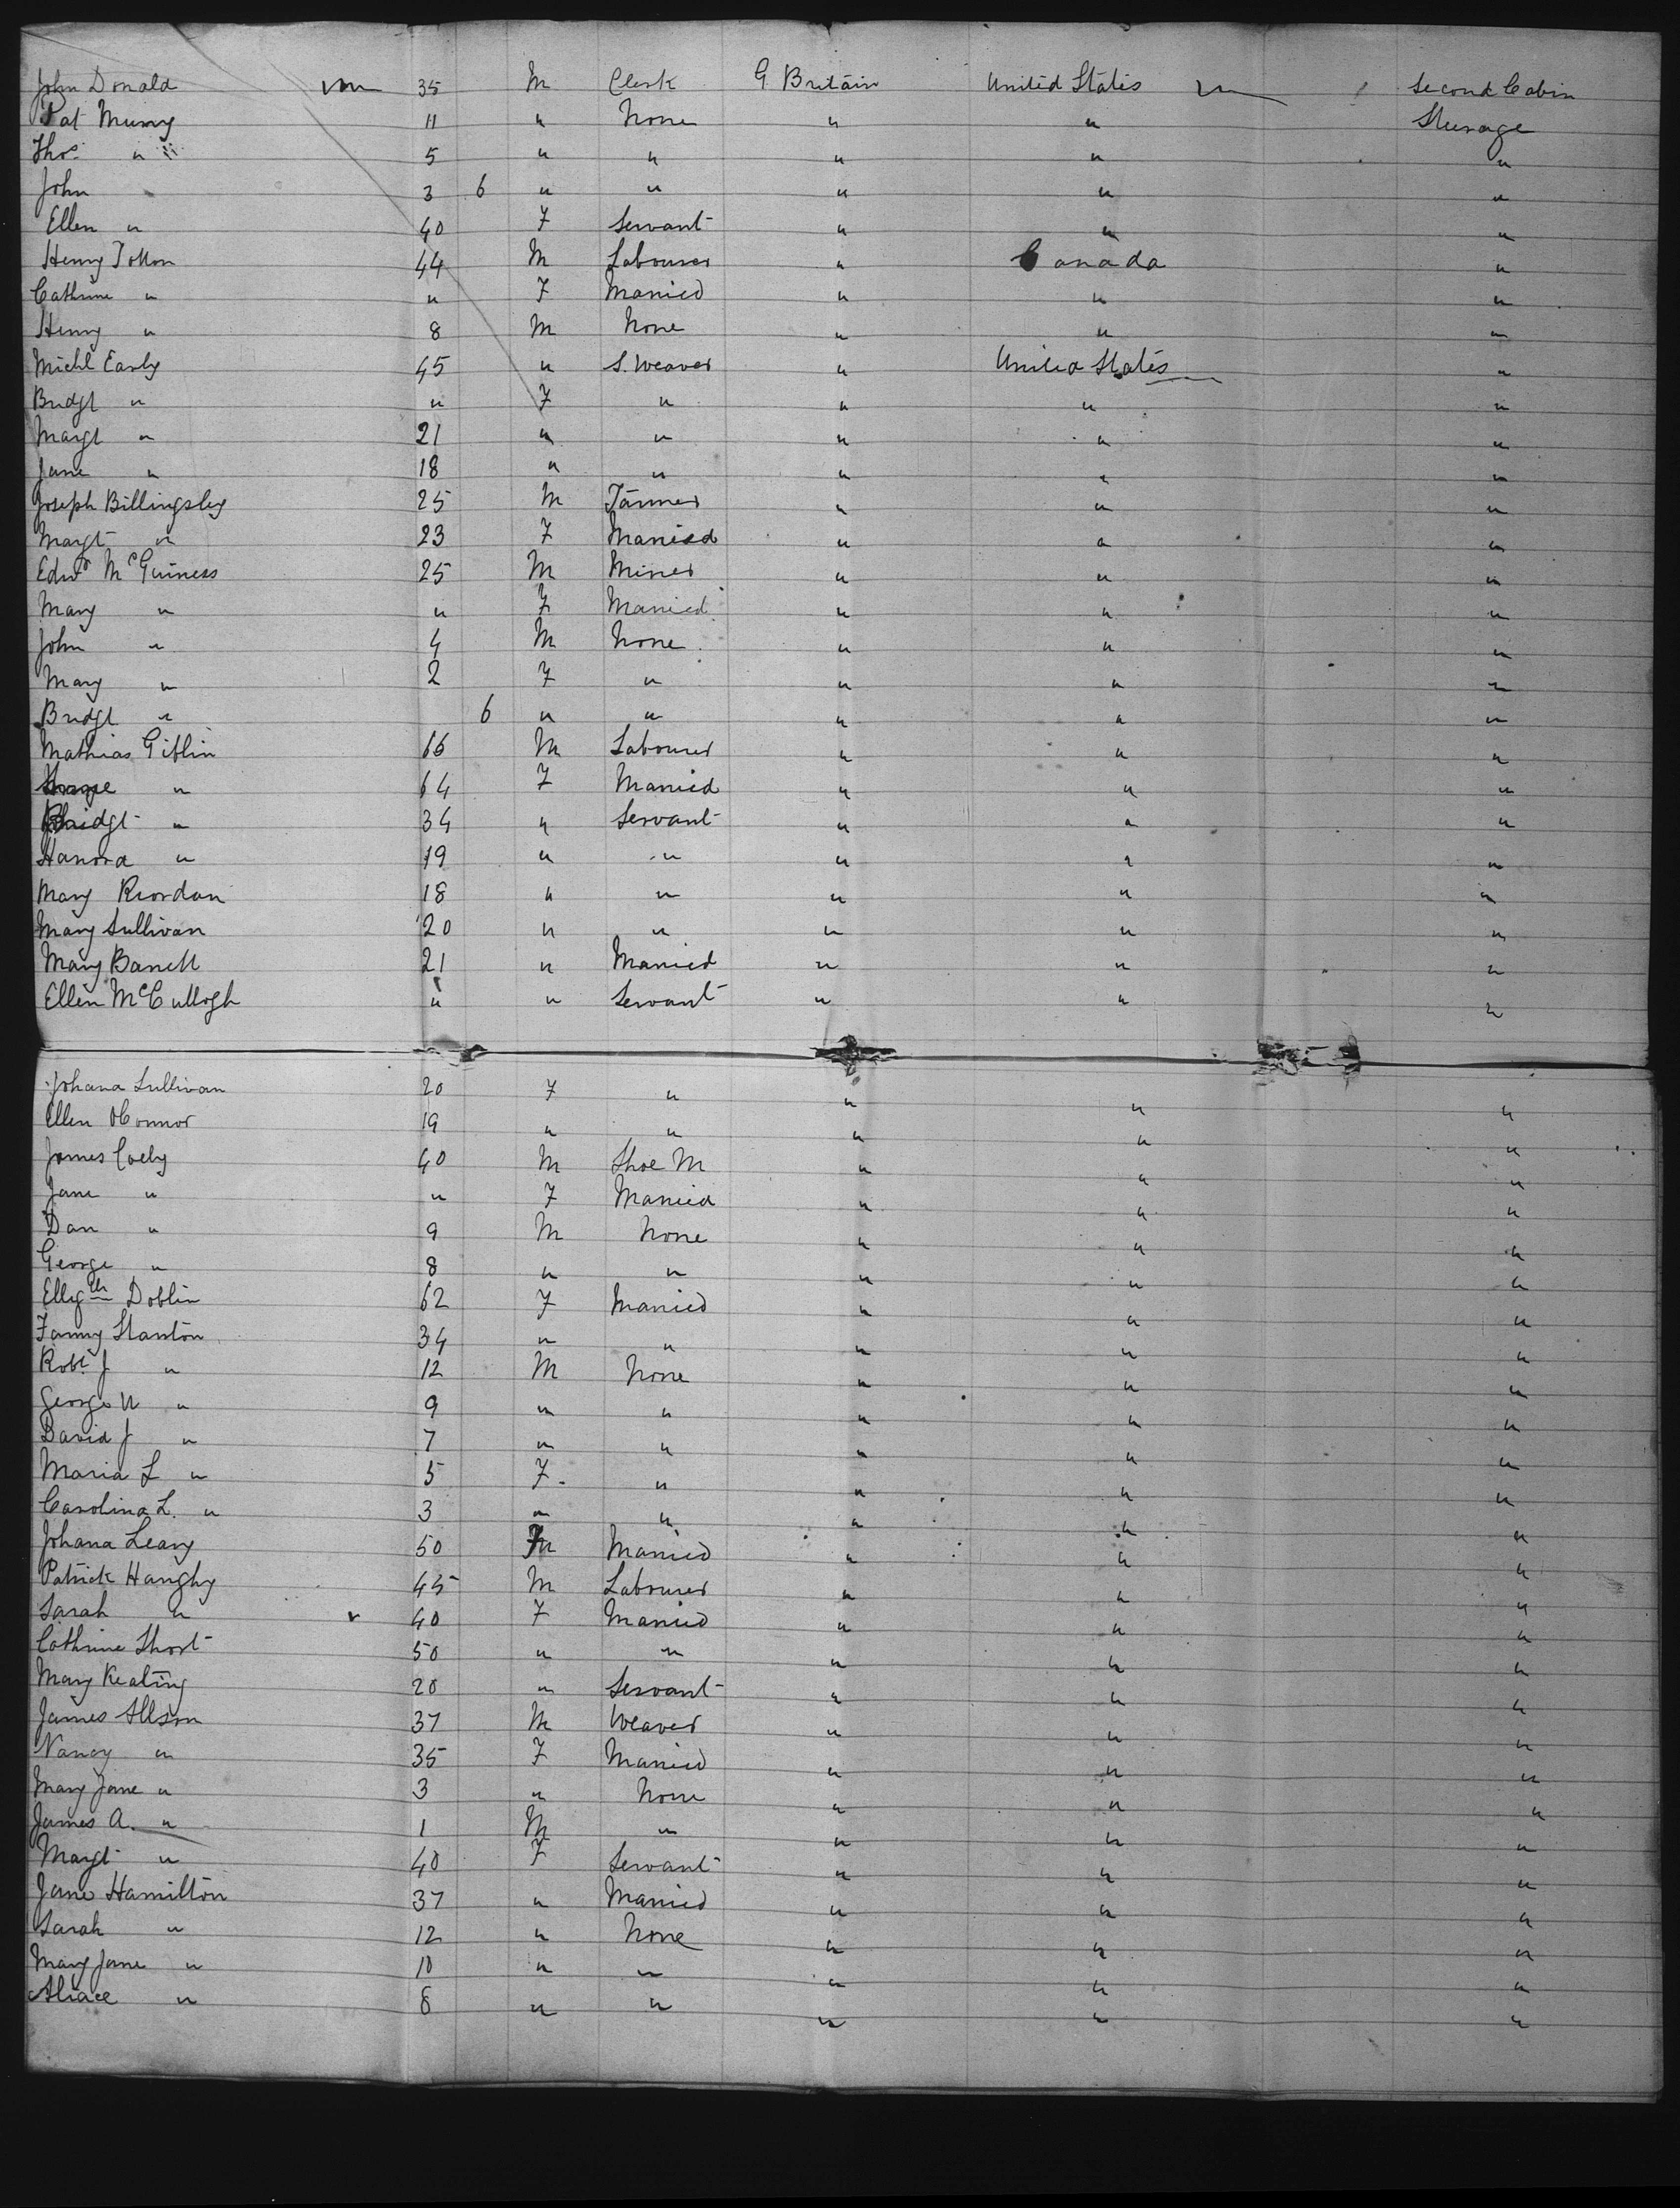 John Donald 35 M Clerk G Britain United States Second Cabin
Pat Murray 11 " None " " Steerage
Thos " 5 " " " " "
John 3 6 " " " " "
Ellen " 40 F Servant " " "
Henry Totton 44 M Labourer " Canada "
Cathrine " " F Married " " "
Henry " 8 M None " " "
Michl Early 45 " S. Weaver " United States "
Bridgt " " F " " " "
Margt " 21 " " " " "
Jane " 18 " " " " "
Joseph Billingsley 25 M Farmer " " "
Margt " 23 F Married " " "
Edwd McGuiness 25 M Miner " " "
Mary " " F Married " " "
John " 4 M None " " "
Mary " 2 F " " " "
Bridgt " 6 " " " " "
Mathias Giblin 66 M Labourer " " "
" 64 F Married " " "
Bridgt " 34 " Servant " " "
Hanora " 19 " " " " "
Mary Riordan 18 " " " " "
Mary Sullivan 20 " " " " "
Mary Barrett 21 " Married " " "
Ellen McCullogh " " Servant " " "
Johana Sullivan 20 F " " " "
Ellen OConnor 19 " " " " "
James 40 M Shoe M " " "
Jane " " F Married " " "
Dan " 9 M None " " "
George " 8 " " " " "
Doblin 62 F Married " " "
Fanny Stanton 34 " " " " "
Robt J " 12 M None " " "
George W " 9 " " " " "
David J " 7 " " " " "
Maria L " 5 F " " " "
Carolina L. " 3 " " " " "
Johana Leary 50 F Married " " "
Patrick Haughy 45 M Labourer " " "
Sarah " 40 F Married " " "
Cathrine Short 50 " " " " "
Mary Keating 20 " Servant " " "
James Allison 37 M Weaver " " "
Nancy " 35 F Married " " "
Mary Jane " 3 " None " " "
James A. " 1 M " " " "
Margt " 40 F Servant " " "
Jane Hamilton 37 " Married " " "
Sarah " 12 " None " " "
Mary Jane " 10 " " " " "
Aliace " 8 " " " " "